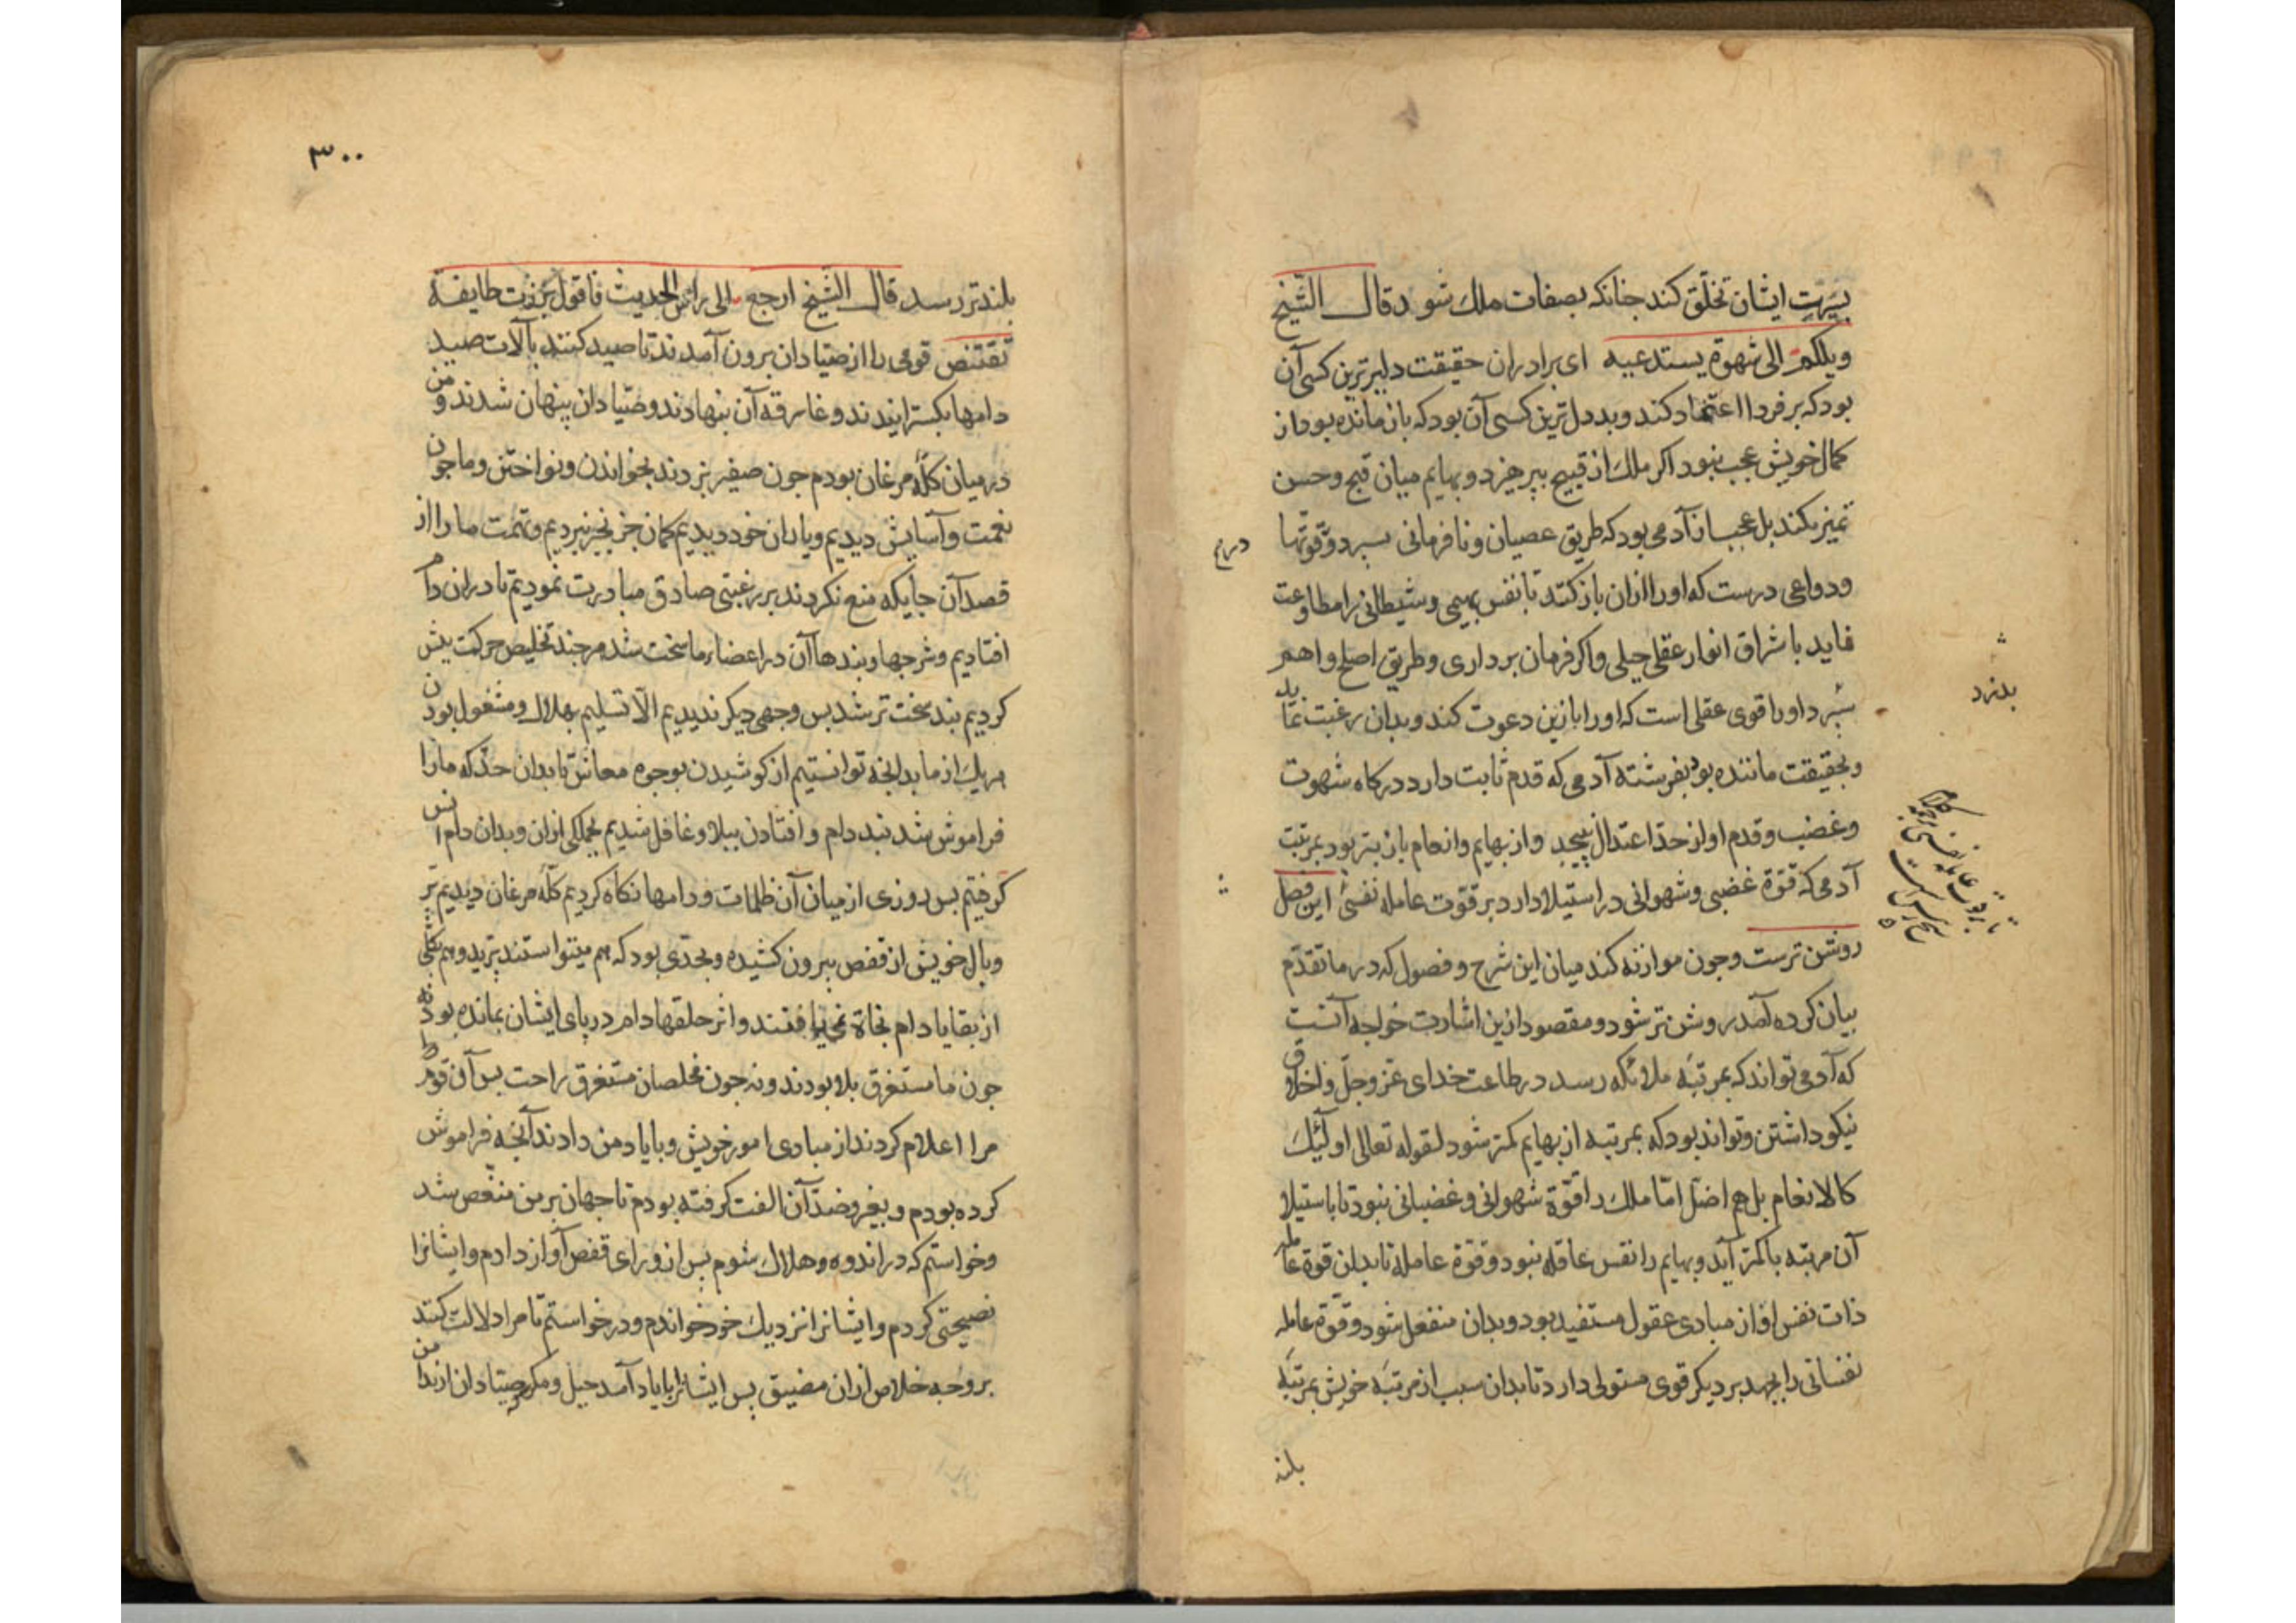 بسیرت ایشان تخلّق کند جنانکه بصفات ملك شود قال الشّیخ
ویلکم الی شهوة یستدعیه ای برادران حقیقت دلیرترین کسی آن
بود که بر فردا اعتماد کند و بددل ترین کسی آن بود که بازمانده بود از
کمال خویش عجب نبود اکر ملك از قبیح بپرهیزد و بهایم میان قبح و حسن
تمیز نکند بل عجب از آدمی بود که طریق عصیان و نافرمانی سپرد و قوتها
درو
ودواعی درست که او را ازان باز کند تا نفس بهیمی و شیطانی را مطاوعت
نماید با شراق انوار عقلی جبلی و اکر فرمان برداری و طریق اصلح و اهم
سپرد او را قوی عقلی است که او را با زین دعوت کند و بدان رغبت نماید
و بحقیقت ماننده بود بفرشته آدمی که قدم ثابت دارد در کاه شهوت
وغضب وقدم او از حدّ اعتدال نپیچد و از بهایم وانعام باز بتر بود بمرتبت
آدمی که قوّة غضبی و شهوانی در استیلا دارد بر قوّت عامله نفسی این فصل
روشن ترست و جون موازنه کند میان این شرح و فصول که در ما تقدّم
بیان کرده آمد روشن تر شود و مقصود ازین اشارت خواجه آنست
که آدمی تواند که بمرتبه ملائکه رسد در طاعت خدای عزّ وجلّ واخلاق
نیکو داشتن و تواند بود که بمرتبه از بهایم کمتر شود لقوله تعالی اولئك
کالانعام بل هم اضلّ امّا ملك را قوّة شهوانی و غضبانی نبود تا باستیلا
آن مرتبه با کمتر آید و بهایم را نفس عاقله نبود و قوّة عامله تا بدان قوة عامله
ذات نفس او از مبادی عقول مستفید بود و بدان منفعل شود و قوّة عامله
نفسانی را بجهد بر دیکر قوی مستولی دارد تا بدان سبب از مرتبه خویش بمرتبه
بلند
٣٠٠
بلندتر رسد قال الشیخ ارجع الی راس الحدیث فاقول برزت طایفة
تقتنص قومی را از صیّادان برون آمدند تا صید کنند بآلات صید
دامها بکسترانیدند و غارقه آن بنهادند و صیّادان پنهان شدند و من
در میان کلّه مرغان بودم جون صفیر بزدند بخواندن و نواختن و ما جون
نعمت و آسایش دیدیم و یاران خود دیدیم کمان جز بخیر نبردیم و تهمت ما را از
قصد آن جایکه منع نکردند بر رغبتی صادق مبادرت نمودیم تا در ان دام
افتادیم و شرجها و بندها آن در اعضاء ما سخت شد هرجند تخلیص حرکت بیش
کردیم بند سخت تر شد بس وجهی دیکر ندیدیم الّا تسلیم بهلاك و مشغول بودن
هر یك از ما بدانخه توانستیم از کوشیدن بوجوه معاش تا بدان حدّ که ما را
فراموش شد بند دام و افتادن ببلا و غافل شدیم بجملکی ازان و بدان دام انس
کرفتیم بس روزی از میان آن ظلمات و دامها نکاه کردیم کلّه مرغان دیدیم پر
و بال خویش از قفص بیرون کشیده و بحدّی بود که هم میتوانستند پرید و هم بکلّی
از بقایا دام نجاة نمی یافتند و اثر حلقها دام در پای ایشان بمانده بود نه
جون ما مستغرق بلا بودند و نه جون مخلصان مستغرق راحت بس آن قوم
مرا اعلام کردند از مبادی امور خویش و با یاد من دادند آنخه فراموش
کرده بودم و بغیر و ضدّ آن الفت کرفته بودم تا جهان بر من منغّص شد
وخواستم که در اندوه و هلاك شوم بس از ورای قفص آواز دادم و ایشانرا
نصیحتی کردم و ایشانرا نزدیك خود خواندم و درخواستم تا مرا دلالت کنند
بر وجه خلاص ازان مضیق بس ایشانرا با یاد آمد حیل و مکر صیّادان از من